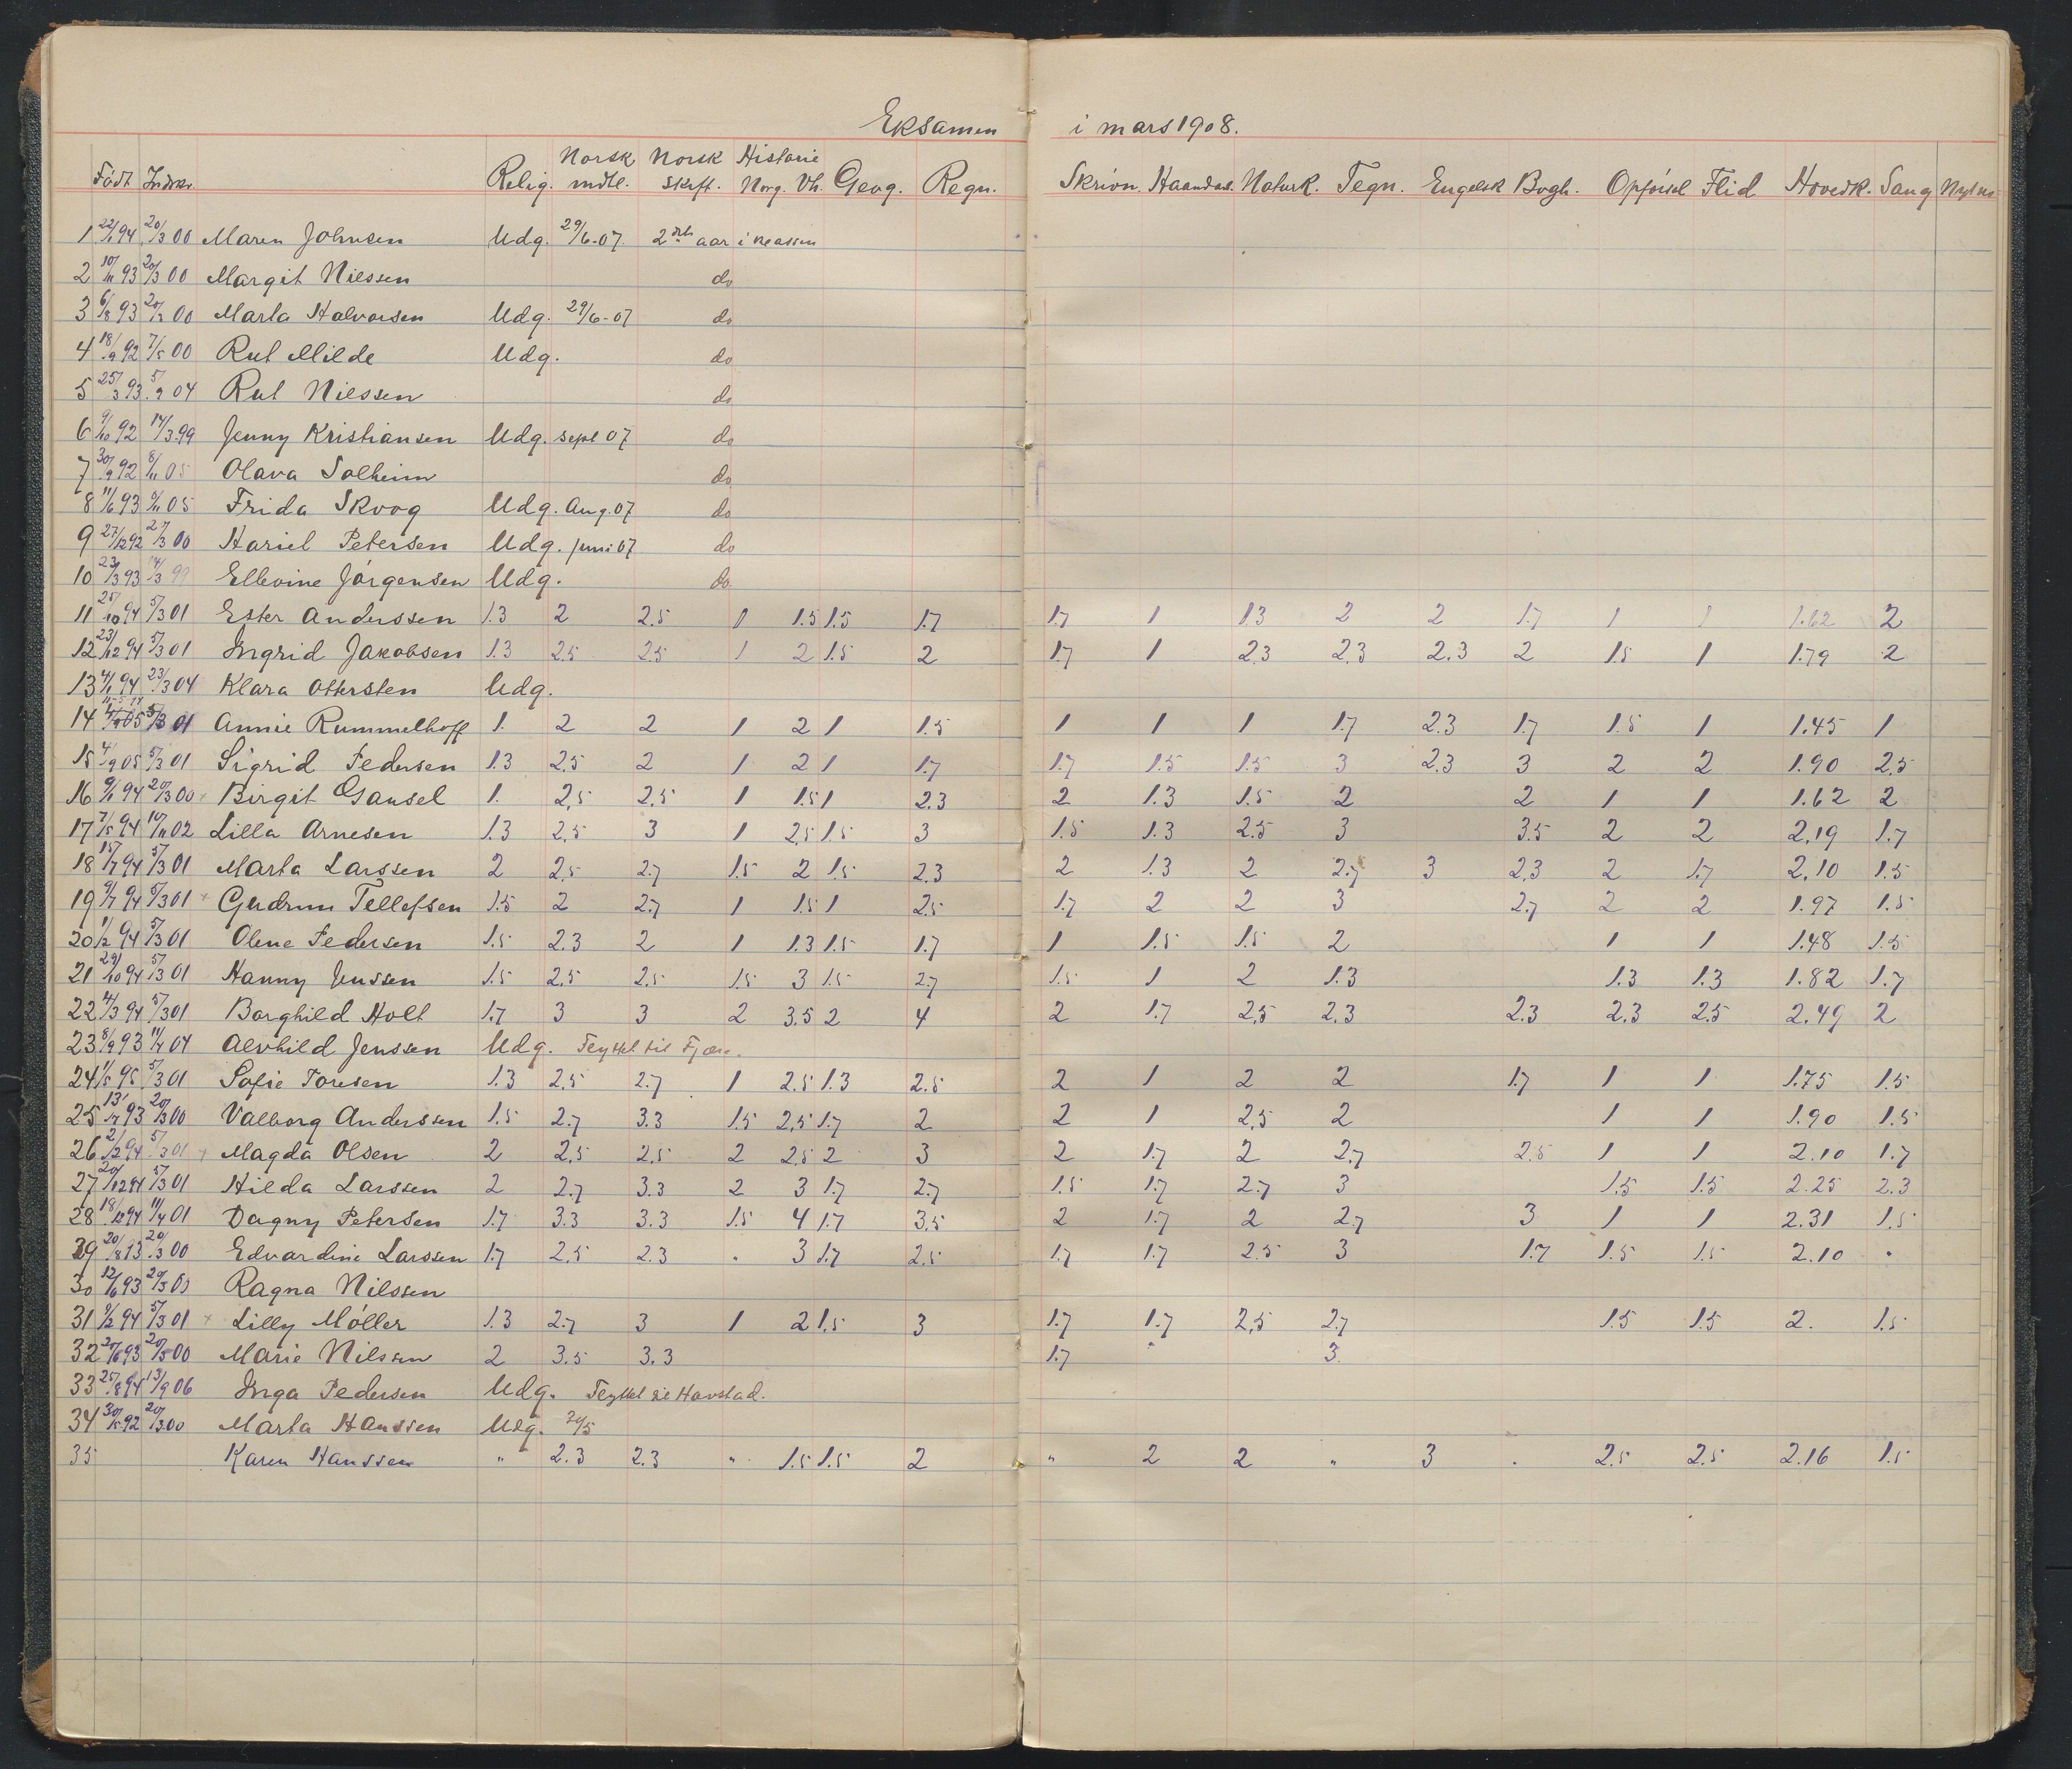 Eksamen i mars 1908.
Født Indskr. Relig. Norsk mdtl. Norsk skrft. Historie Norg. Vh. Geog. Regn. Skrivn. Haandarb. Naturk. Tegn. Engelsk Bogh. Opførsel Flid Hovedk. Sang
1 22/1 94 20/3 00 Maren Johnsen Udg. 29/6-07. 2det aar i klassen
2 10/11 93 20/3 00 Margit Nilssen do
3 6/8 93 20/3 00 Marta Halvorsen Udg. 29/6-07 do
4 18/9 92 7/5 00 Rut Milde Udg. do
5 25/3 93 5/9 04 Rut Nilssen do
6 9/10 92 14/3 99 Jenny Kristiansen Udg. sept 07 do
7 30/9 92 8/11 05 Olava Solheim do
8 11/6 93 05 Frida Skoog Udg. Aug. 07 do
9 27/12 92 27/3 00 Hariet Petersen Udg. juni 07 do
10 23/3 93 14/3 99 Ellevine Jørgensen Udg. do.
11 25/10 94 5/3 01 Ester Anderssen 1.3 2 2.5 1 1.5 1.5 1.7 1.7 1 1.3 2 2 1.7 1 1 1.62 2
12 23/12 94 5/3 01 Ingrid Jakobsen 1.3 2.5 2.5 1 2 1.5 2 1.7 1 2.3 2.3 2.3 2 1.5 1 1.79 2
13 4/1 94 23/3 04 Klara Ottersten Udg.
14 5/3 01 Annie Rummelhoff 1. 2 2 1 2 1 1.5 1 1 1 1.7 2.3 1.7 1.5 1 1.45 1
15 4/9 05 5/3 01 Sigrid Pedersen 1.3 2.5 2 1 2 1 1.7 1.7 1.5 1.5 3 2.3 3 2 2 1.90 2.5
16 9/1 94 20/3 00 x Birgit Gansel 1. 2.5 2.5 1 1.5 1 2.3 2 1.3 1.5 2 2 1 1 1.62 2
17 7/5 94 10/11 02 Lilla Arnesen 1.3 2.5 3 1 2.5 1.5 3 1.5 1.3 2.5 3 3.5 2 2 2.19 1.7
18 15/7 94 5/3 01 Marta Larssen 2 2.5 2.7 1.5 2 1.5 2.3 2 1.3 2 2.7 3 2.3 2 1.7 2.10 1.5
19 9/7 94 5/3 01 x Gudrun Tellefsen 1.5 2 2.7 1 1.5 1 2.5 1.7 2 2 3 2.7 2 2 1.97 1.5
20 1/2 94 5/3 01 Olene Pedersen 1.5 2.3 2 1 1.3 1.5 1.7 1 1.5 1.5 2 1 1 1.48 1.5
21 29/10 94 5/3 01 Hanny Jenssen 1.5 2.5 2.5 1.5 3 1.5 2.7 1.5 1 2 1.3 1.3 1.3 1.82 1.7
22 4/3 94 5/3 01 Borghild Holt 1.7 3 3 2 3.5 2 4 2 1.7 2.5 2.3 2.3 2.3 2.5 2.49 2
23 8/9 93 11/4 04 Alvhild Jenssen Udg. Flyttet til Fjære.
24 1/5 95 5/3 01 Sofie Toresen 1.3 2.5 2.7 1 2.5 1.3 2.5 2 1 2 2 1.7 1 1 1.75 1.5
25 13/7 93 20/3 00 Valborg Anderssen 1.5 2.7 3.3 1.5 2.5 1.7 2 2 1 2.5 2 1 1 1.90 1.5
26 2/2 94 5/3 01 x Magda Olsen 2 2.5 2.5 2 2.5 2 3 2 1.7 2 2.7 2.5 1 1 2.10 1.7
27 20/12 94 5/3 01 Hilda Larssen 2 2.7 3.3 2 3 1.7 2.7 1.5 1.7 2.7 3 1.5 1.5 2.25 2.3
28 18/12 94 11/4 01 Dagny Petersen 1.7 3.3 3.3 1.5 4 1.7 3.5 2 1.7 2 2.7 3 1 1 2.31 1.5
29 20/8 93 20/3 00 Edvardine Larssen 1.7 2.5 2.3 " 3 1.7 2.5 1.7 1.7 2.5 3 1.7 1.5 1.5 2.10 "
30 12/6 93 20/3 00 Ragna Nilssen
31 9/2 94 5/3 01 x Lilly Møller 1.3 2.7 3 1 2 1.5 3 1.7 1.7 2.5 2.7 1.5 1.5 2. 1.5
32 27/6 93 20/3 00 Marie Nilssen 2 3.5 3.3 1.7 " 3.
33 25/8 94 13/9 06 Inga Pedersen Udg. Flyttet til Havstad.
34 30/5 92 20/3 00 Marta Hanssen Udg. 20/5
35 Karen Hanssen " 2.3 2.3 " 1.5 1.5 2 " 2 2 " 3 . 2.5 2.5 2.16 1.5